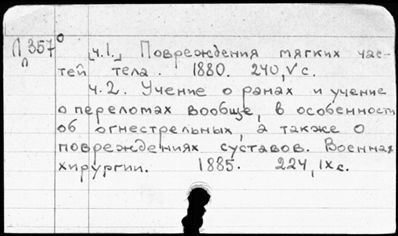 П 357⁰
П
[ч.1.] Повреждения мягких час-
тей тела. 1880. 240, V с.
ч.2. Учение о ранах и учение
о переломах вообще, в особенности
об огнестрельных, а также о
повреждениях суставов. Военная
хирургии. 1885. 224, IX с.